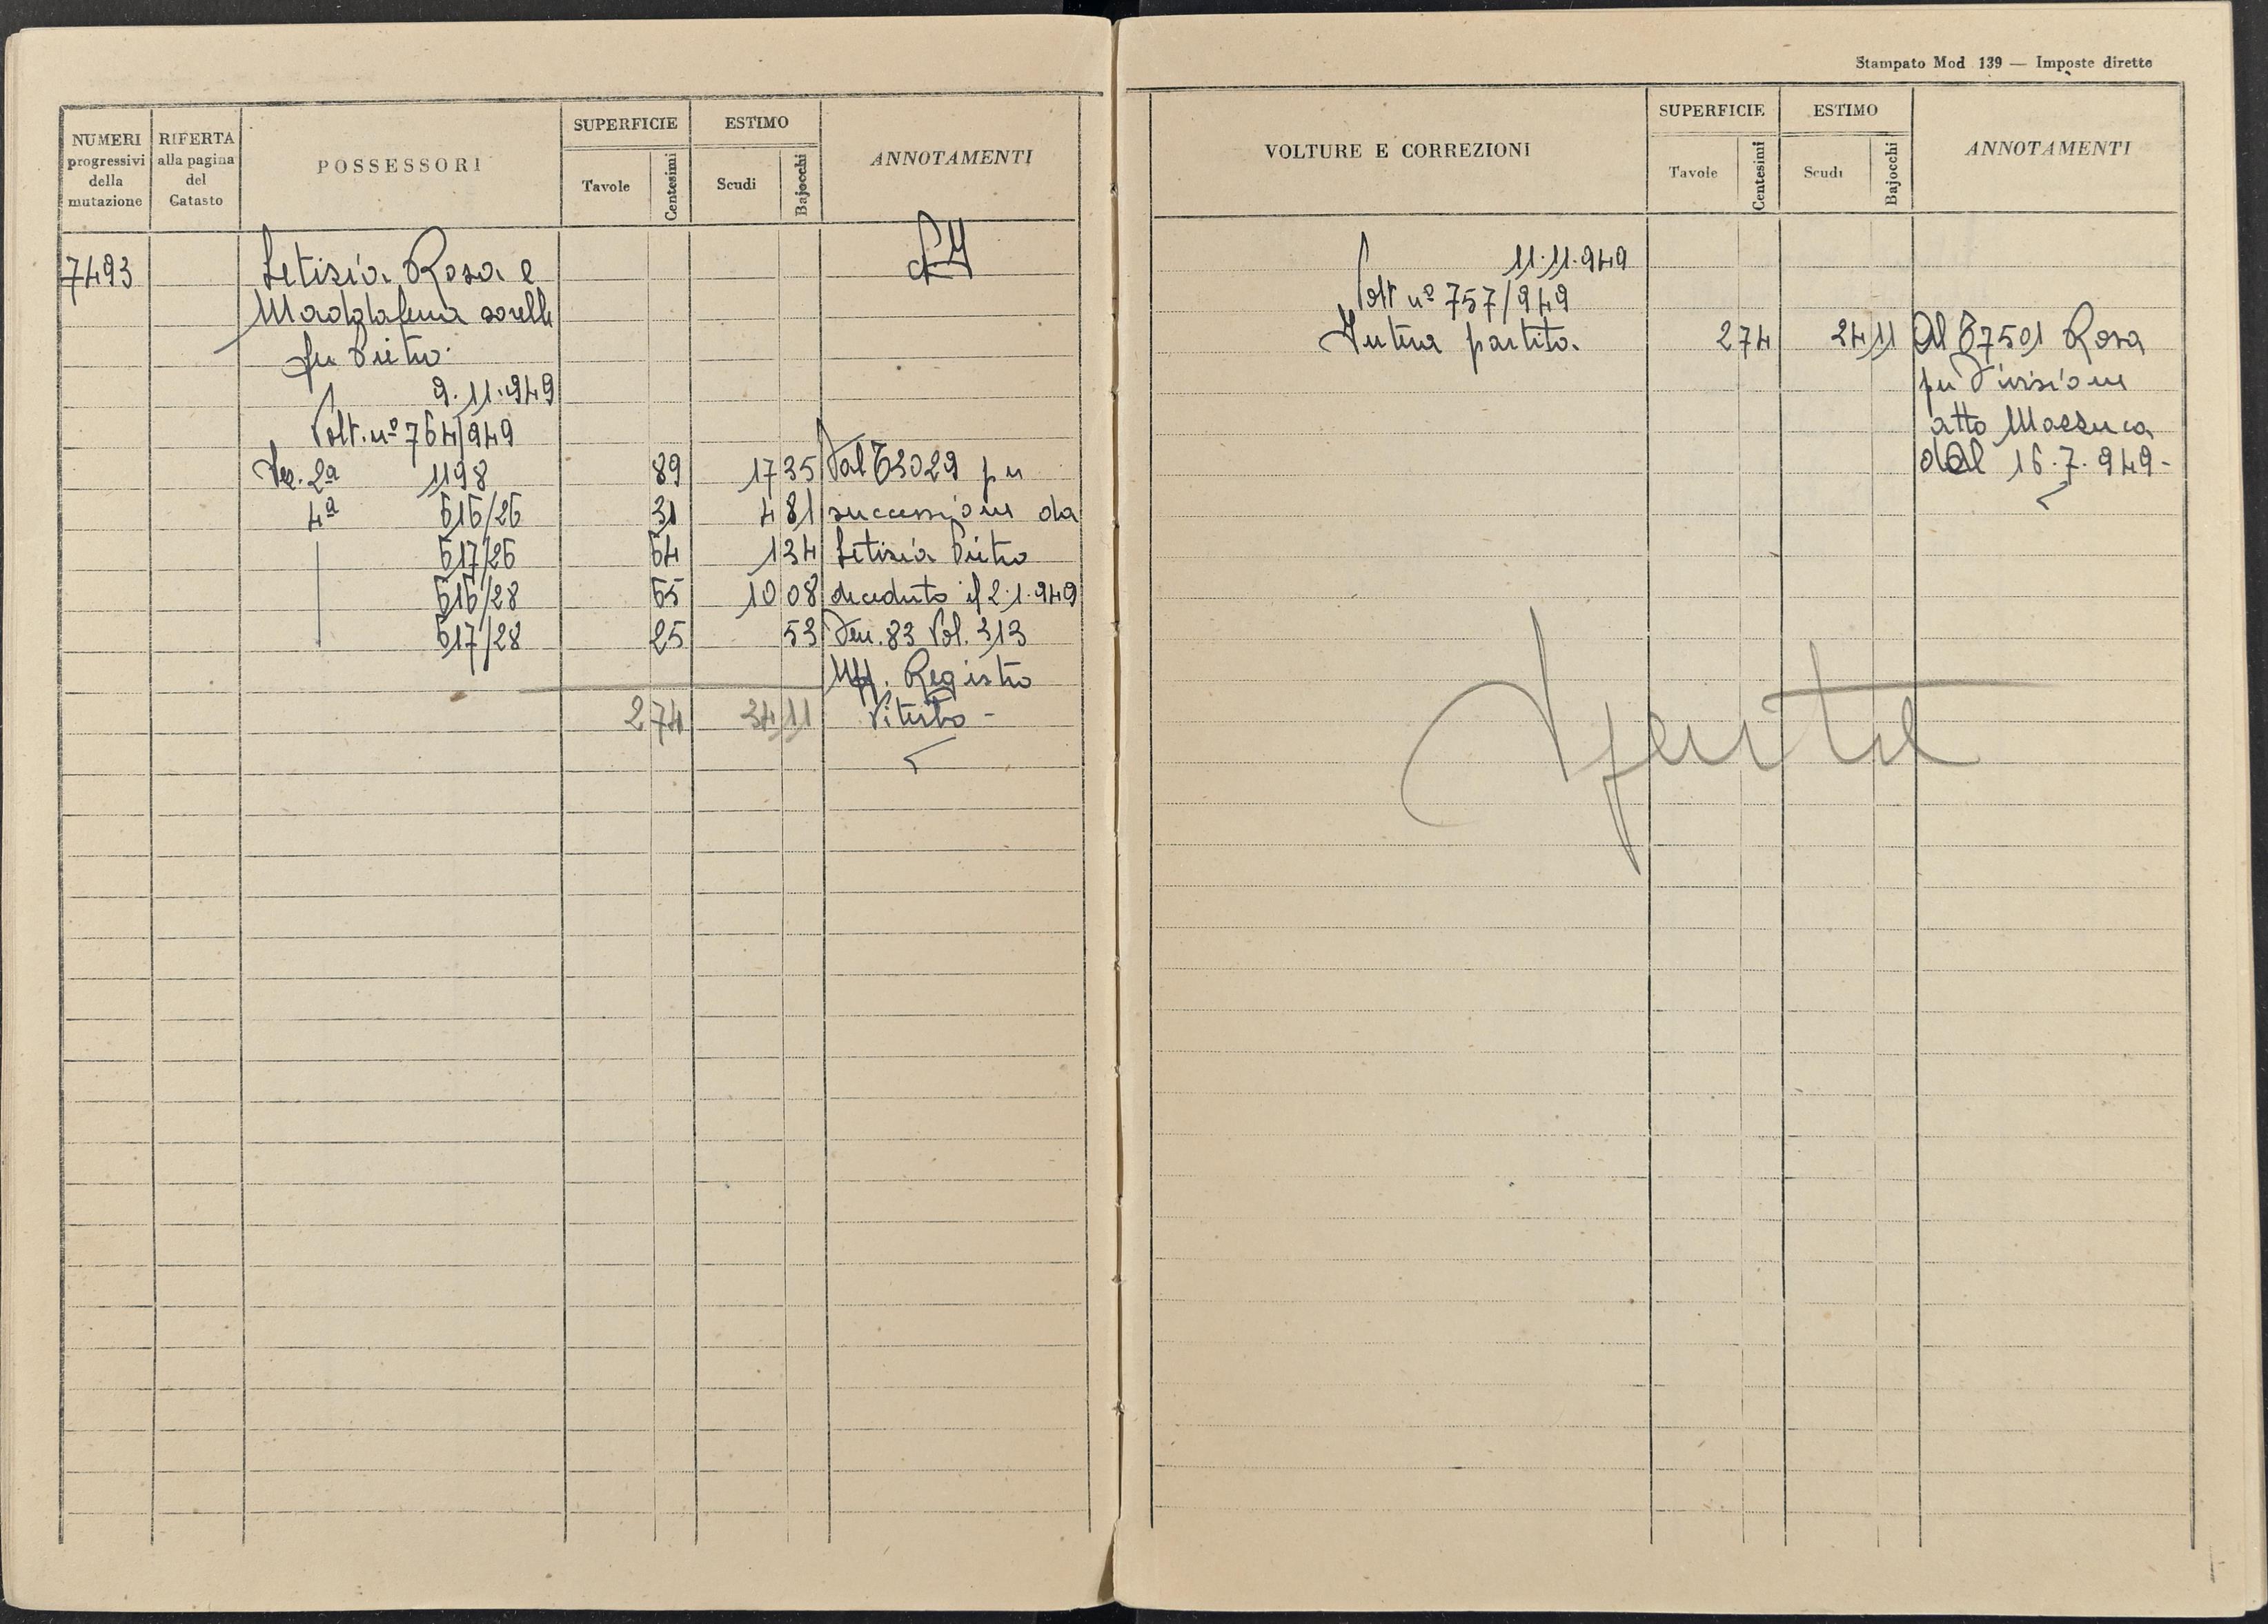 NUMERI progressivi della mutazione
RIFERTA alla pagina del Catasto
POSSESSORI
SUPERFICIE
Tavole
Centesimi
ESTIMO
Scudi
Bajocchi
ANNOTAMENTI
7493
Letizia Rosa e
Maddalena sorelle
fu Pietro
9.11.949
Volt. nº 764/949
Sez. 2ª 1198 89 17 35 Dal 63029 per
4ª 616/26 31 4 81 successione da
617/26 64 1 34 Letizia Pietro
616/28 65 10 08 deceduto il 2.1.949
617/28 25 53 Den. 83 Vol. 313
Uff. Registro
2 74 34 11 Viterbo -
Stampato Mod 139 — Imposte dirette
VOLTURE E CORREZIONI
SUPERFICIE
Tavole
Centesimi
ESTIMO
Scudi
Bajocchi
ANNOTAMENTI
11.11.949
Volt nº 757/949
Intera partita. 2 74 24 11 Al 67501 Rosa
per Divisione
atto Mazzuca
del 16.7.949-
Spenta